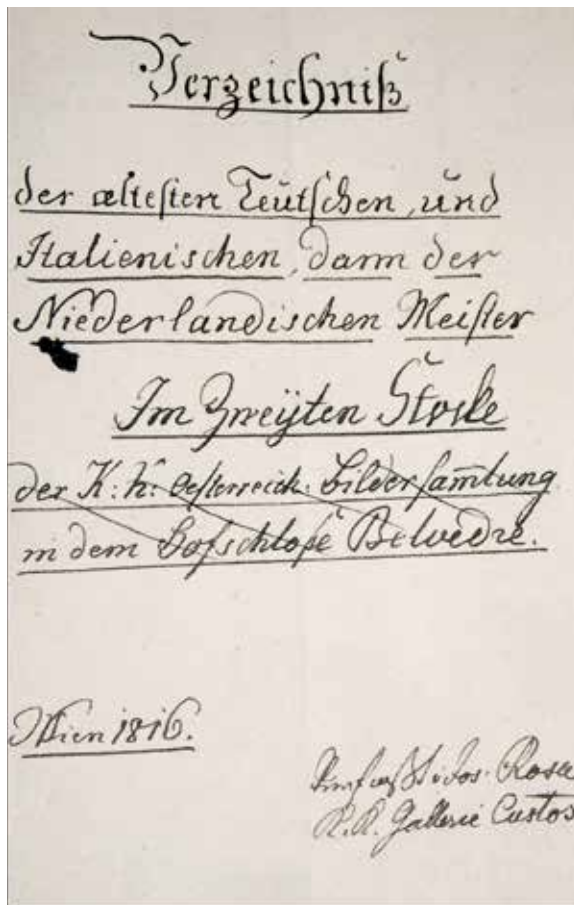 Verzeichniß
der æltesten Teutschen, und
Italienischen, dann der
Niederlandischen Meister
Im Zweÿten Stocke
der K: K: Oesterreich: Bildersam̄lung
in dem Hofschloße Belvedre.
Wien 1816.
Jos: Rosa
K. K. Gallerie Custos